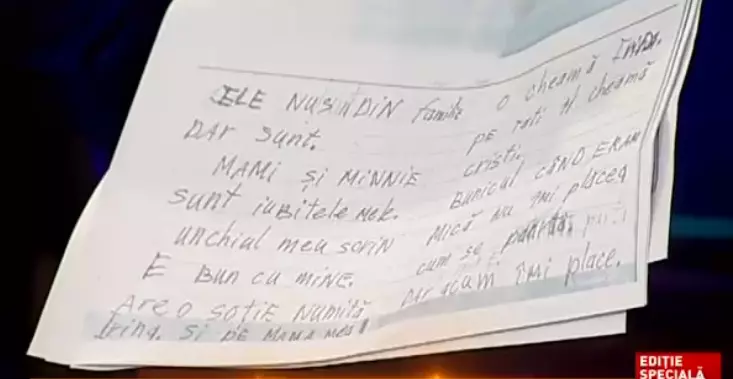 ELE NUSINDIN familie
DAR sunt.
MAMi și MiNNIE
sunt iubitele mele.
unchiul meu sorin
E Bun cu MiNE.
Are o soțiE Numită
Irina. și pE MAMA MEA
o cheamă Irina.
PE tati îl cheamă
cristi.
Bunicul CÂND ERAM
Mică NU îmi placea
cum se purta
DAR acum îmi place.
EDIȚIE
SPECIALĂ